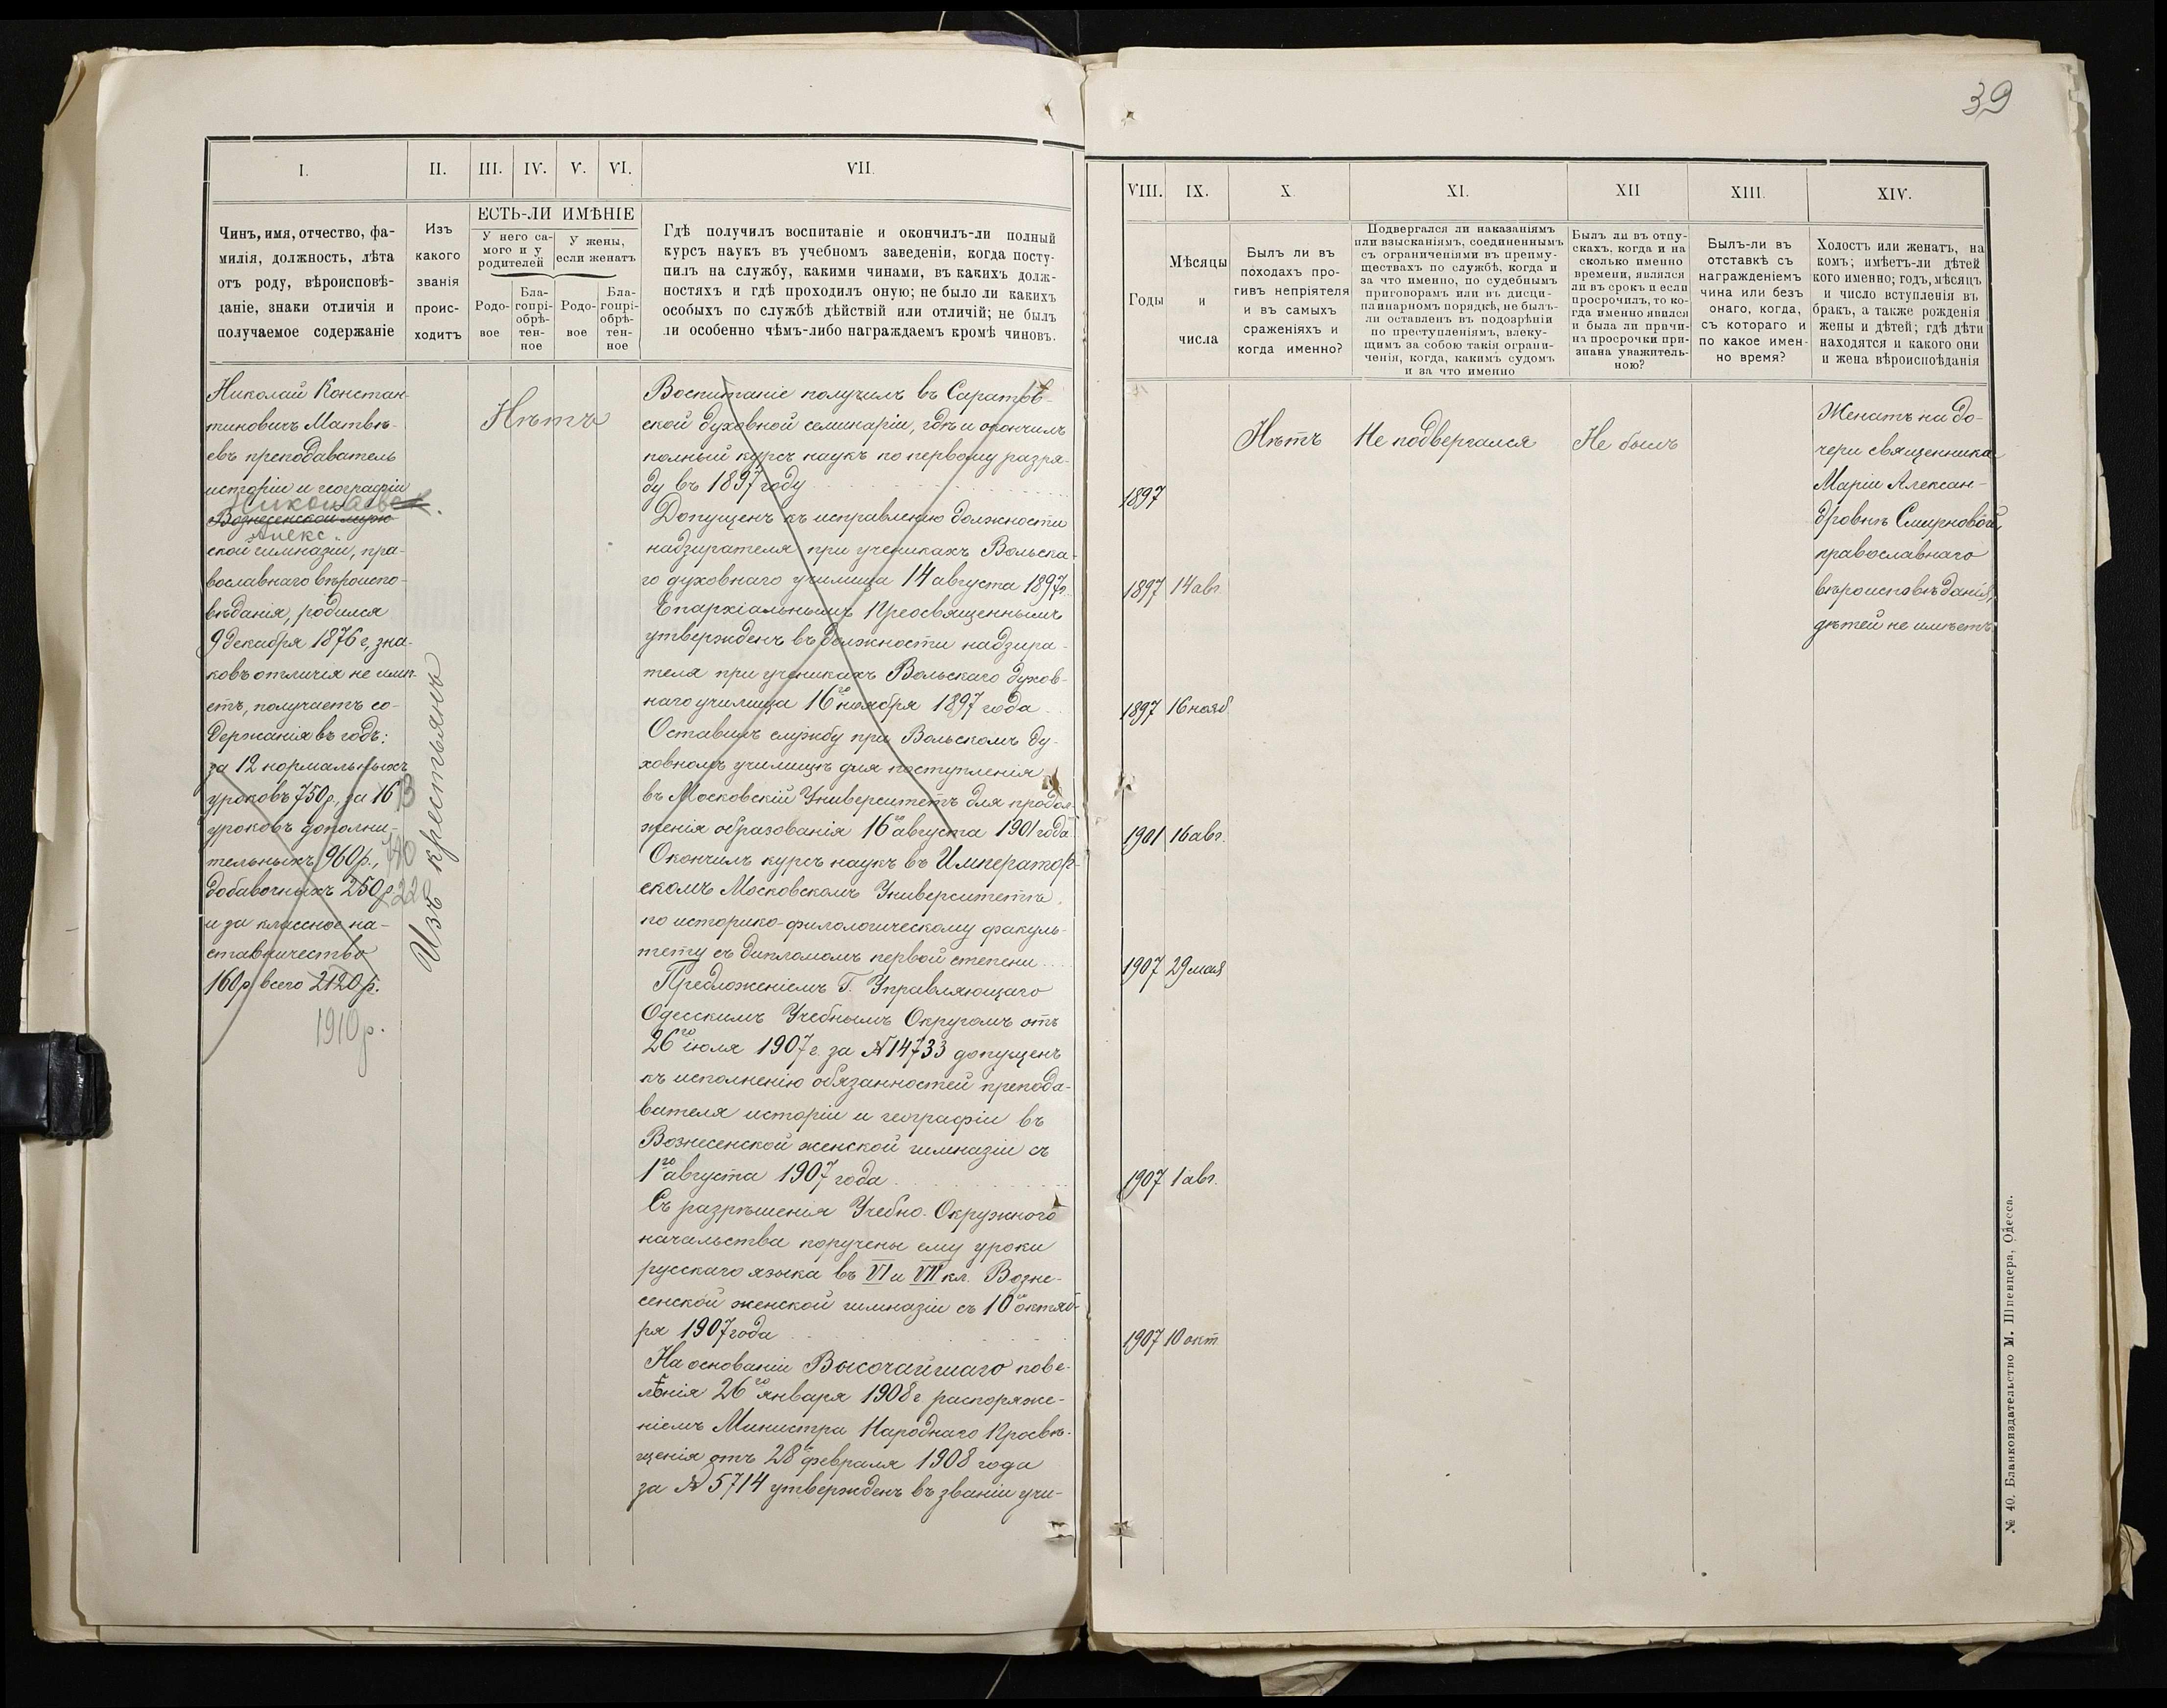 39
I.
II.
III.
IV.
V.
VI.
VII.
ЕСТЬ-ЛИ ИМѢНІЕ
Чинъ, имя, отчество, фа-
милія, должность, лѣта
отъ роду, вѣроисповѣ-
даніе, знаки отличія и
получаемое содержаніе
Изъ
какого
званія
проис-
ходитъ
У него са-
мого и у
родителей
У жены,
если женатъ
Родо-
вое
Бла-
гопрі-
обрѣ-
тен-
ное
Родо-
вое
Бла-
гопрі-
обрѣ-
тен-
ное
Гдѣ получилъ воспитаніе и окончилъ-ли полный
курсъ наукъ въ учебномъ заведеніи, когда посту-
пилъ на службу, какими чинами, въ какихъ долж-
ностяхъ и гдѣ проходилъ оную; не было ли какихъ
особыхъ по службѣ дѣйствій или отличій; не былъ
ли особенно чѣмъ-либо награждаемъ кромѣ чиновъ.
Николай Констан-
тиновичъ Матвѣ-
евъ преподаватель
исторіи и географіи
Николаевск.
Вознесенской муж-
Алекс.
ской гимназіи, пра-
вославнаго вѣроиспо-
вѣданія, родился
9 декабря 1876 г., зна-
ковъ отличія не имѣ-
етъ, получаетъ со-
держанія въ годъ:
за 12 нормальныхъ
уроковъ 750 р., за 16 13
уроковъ дополни-
тельныхъ 960 р.,
добавочныхъ 250 р. 220
и за классное на-
ставничество
160 р. всего 2120 р.
1910 р.
Изъ крестьянъ
Нѣтъ
Воспитаніе получилъ въ Саратов-
ской духовной семинаріи, гдѣ и окончилъ
полный курсъ наукъ по первому разря-
ду въ 1897 году
Допущенъ къ исправленію должности
надзирателя при ученикахъ Вольска-
го духовнаго училища 14 августа 1897 г.
Епархіальнымъ Преосвященнымъ
утвержденъ въ должности надзира-
теля при ученикахъ Вольскаго духов-
наго училища 16го ноября 1897 года
Оставилъ службу при Вольскомъ ду-
ховномъ училищѣ для поступленія
въ Московскій Университетъ для продол-
женія образованія 16го августа 1901 года
Окончилъ курсъ наукъ въ Император-
скомъ Московскомъ Университетѣ,
по историко-филологическому факуль-
тету съ дипломомъ первой степени
Предложеніемъ Г. Управляющаго
Одесскимъ Учебнымъ Округомъ отъ
26го іюля 1907 г. за № 14733 допущенъ
къ исполненію обязанностей препода-
вателя исторіи и географіи въ
Вознесенской женской гимназіи съ
1го августа 1907 года
Съ разрѣшенія Учебно-Окружного
начальства поручены ему уроки
русскаго языка въ VI и VII кл. Возне-
сенской женской гимназіи съ 10го октяб-
ря 1907 года
На основаніи Высочайшаго пове-
лѣнія 26го января 1908 г. распоряже-
ніемъ Министра Народнаго Просвѣ-
щенія отъ 28го февраля 1908 года
за № 5714 утвержденъ въ званіи учи-
VIII.
IX.
X
XI.
XII
XIII.
XIV.
Годы
Мѣсяцы
и
числа
Былъ ли въ
походахъ про-
тивъ непріятеля
и въ самыхъ
сраженіяхъ и
когда именно?
Подвергался ли наказаніямъ
или взысканіямъ, соединеннымъ
съ ограниченіями въ преиму-
ществахъ по службѣ, когда и
за что именно, по судебнымъ
приговорамъ или въ дисци-
плинарномъ порядкѣ, не былъ-
ли оставленъ въ подозрѣніи
по преступленіямъ, влеку-
щимъ за собою такія ограни-
ченія, когда, какимъ судомъ
и за что именно
Былъ ли въ отпу-
скахъ, когда и на
сколько именно
времени, являлся
ли въ срокъ и если
просрочилъ, то ко-
гда именно явился
и была ли причи-
на просрочки при-
знана уважитель-
ною?
Былъ-ли въ
отставкѣ съ
награжденіемъ
чина или безъ
онаго, когда,
съ котораго и
по какое имен-
но время?
Холостъ или женатъ, на
комъ; имѣетъ-ли дѣтей
кого именно; годъ, мѣсяцъ
и число вступленія въ
бракъ, а также рожденія
жены и дѣтей; гдѣ дѣти
находятся и какого они
и жена вѣроисповѣданія
1897
1897 14 авг.
1897 16 нояб.
1901 16 авг.
1907 29 мая
1907 1 авг.
1907 10 окт.
Нѣтъ
Не подвергался
Не былъ
Женатъ на до-
чери священника
Маріи Алексан-
дровнѣ Смирновой,
православнаго
вѣроисповѣданія,
дѣтей не имѣетъ.
№ 40. Бланкоиздательство М. Шпенцера, Одесса.